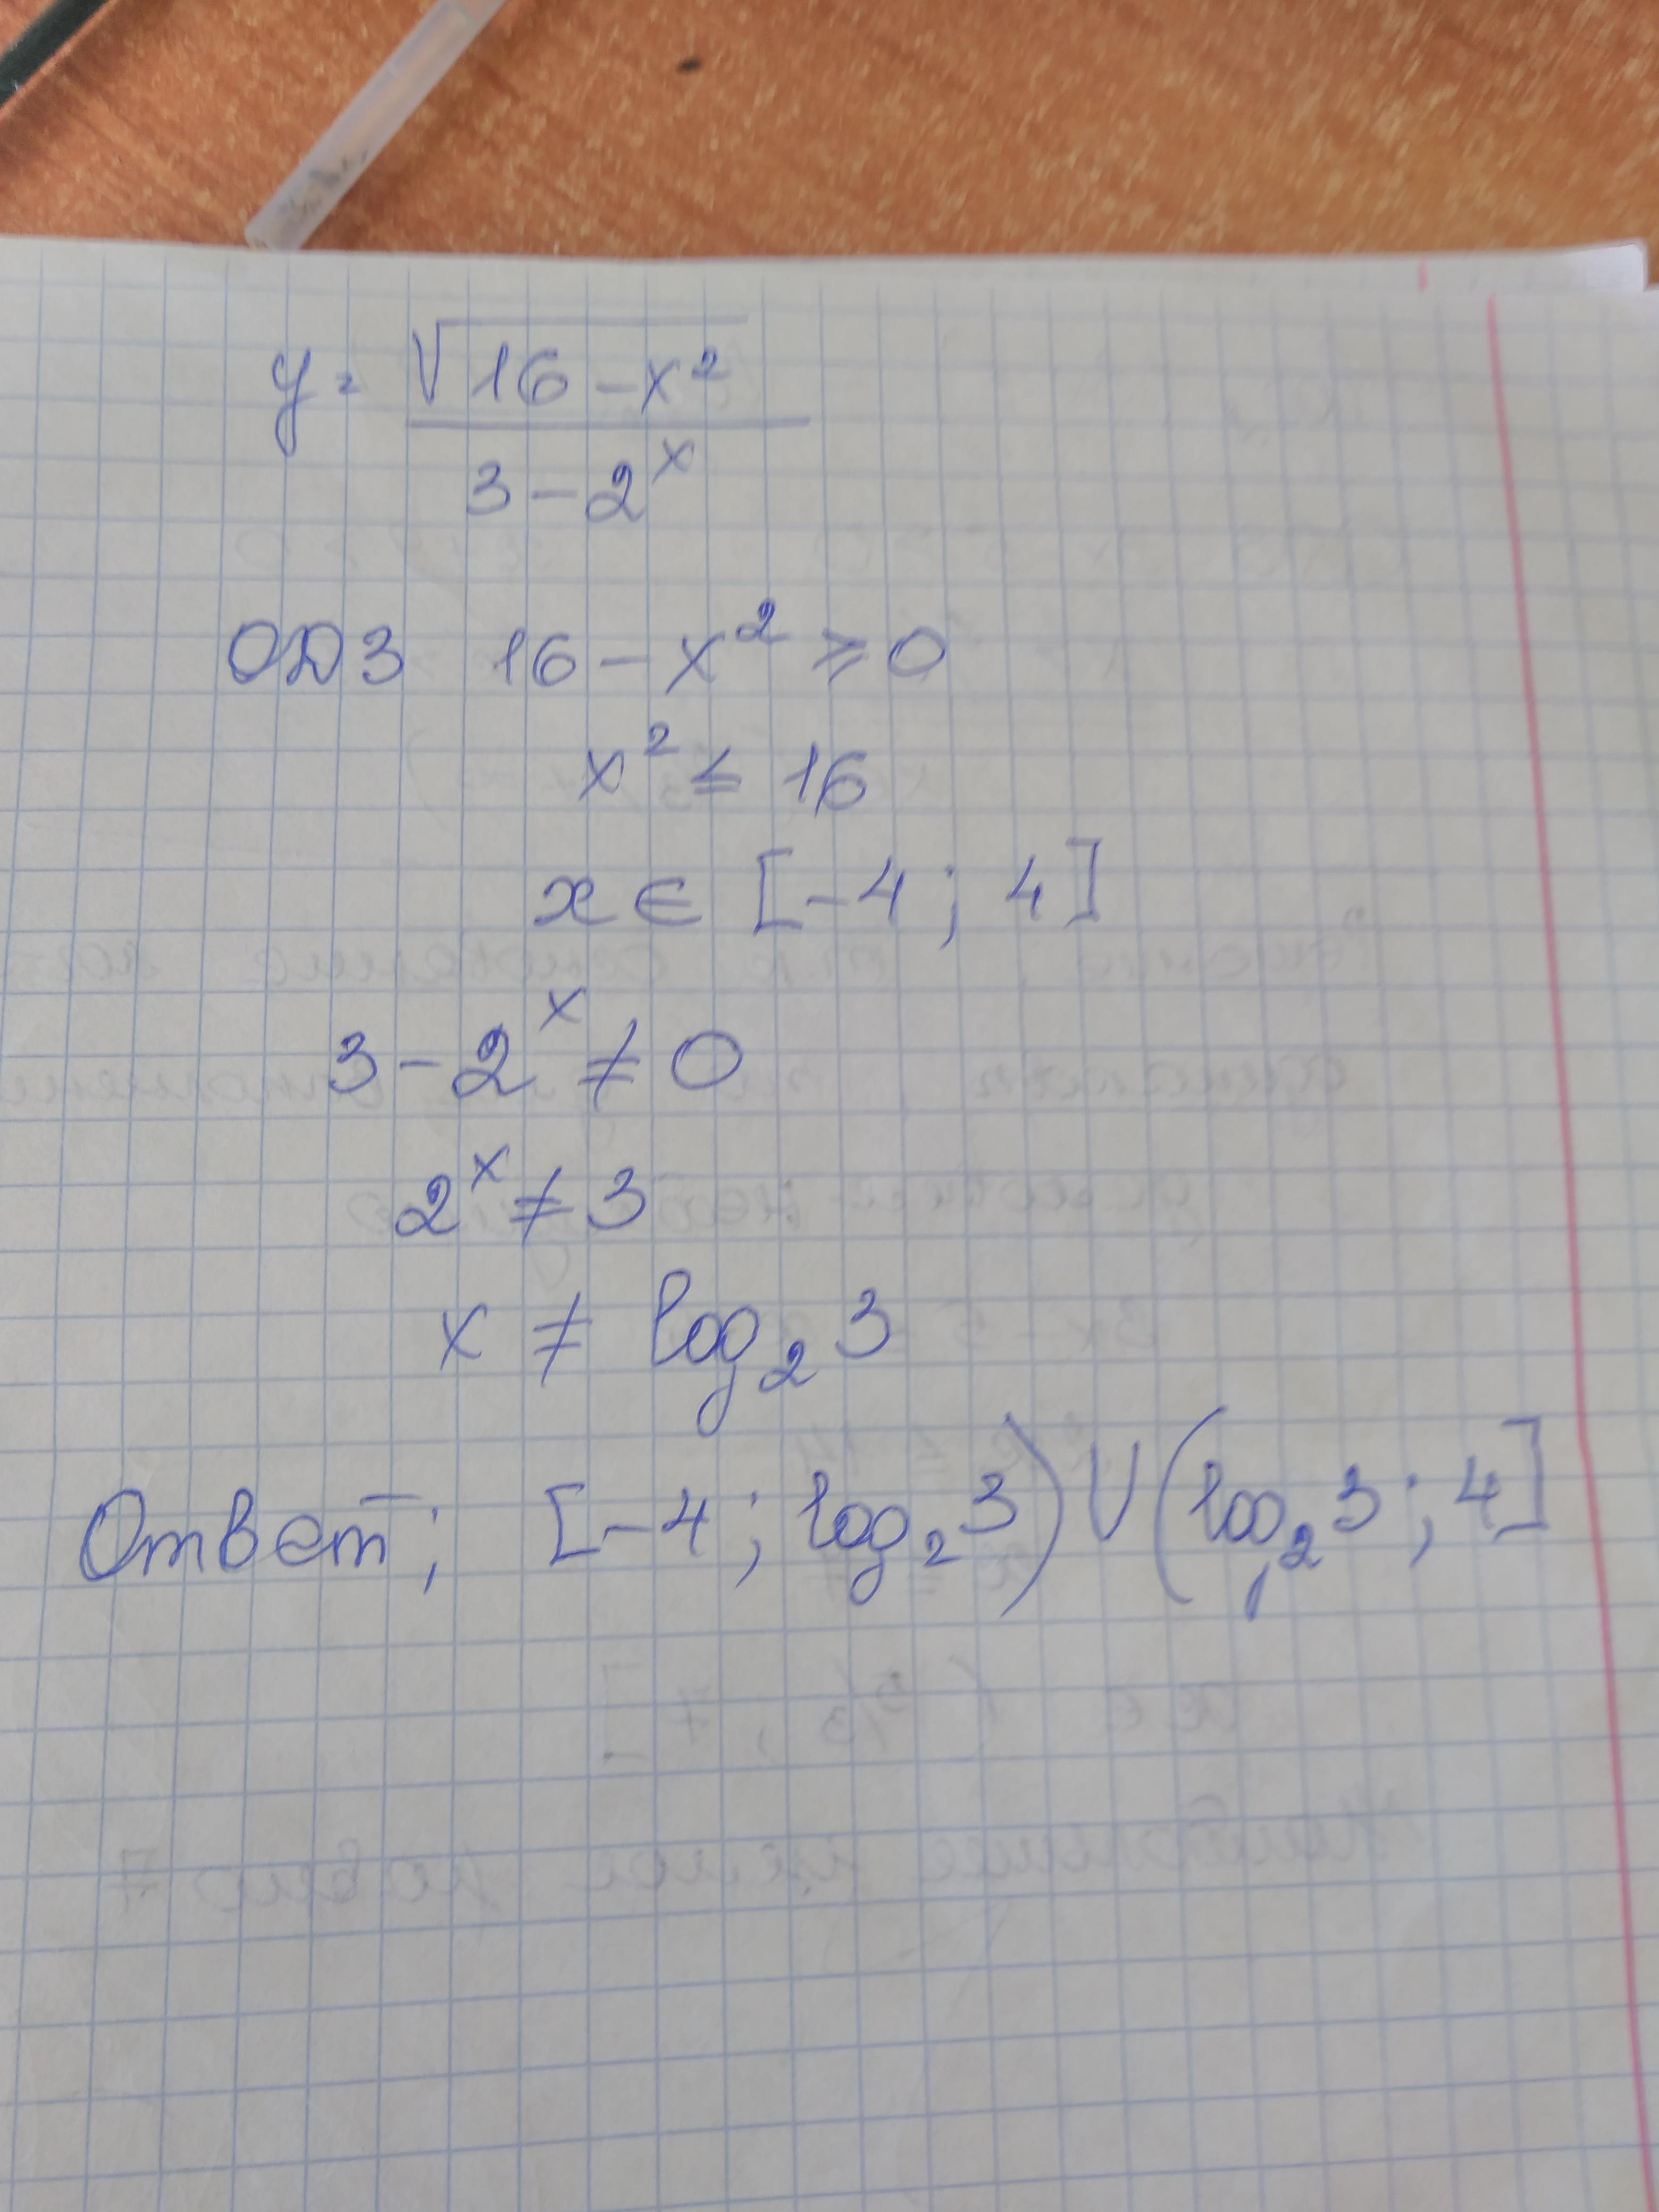 y = √16 - x²
3 - 2ˣ
ОДЗ 16 - x² ≥ 0
x² ≤ 16
x ∈ [-4; 4]
3 - 2ˣ ≠ 0
2ˣ ≠ 3
x ≠ log₂ 3
Ответ; [-4; log₂ 3) ∪ (log₂ 3; 4]